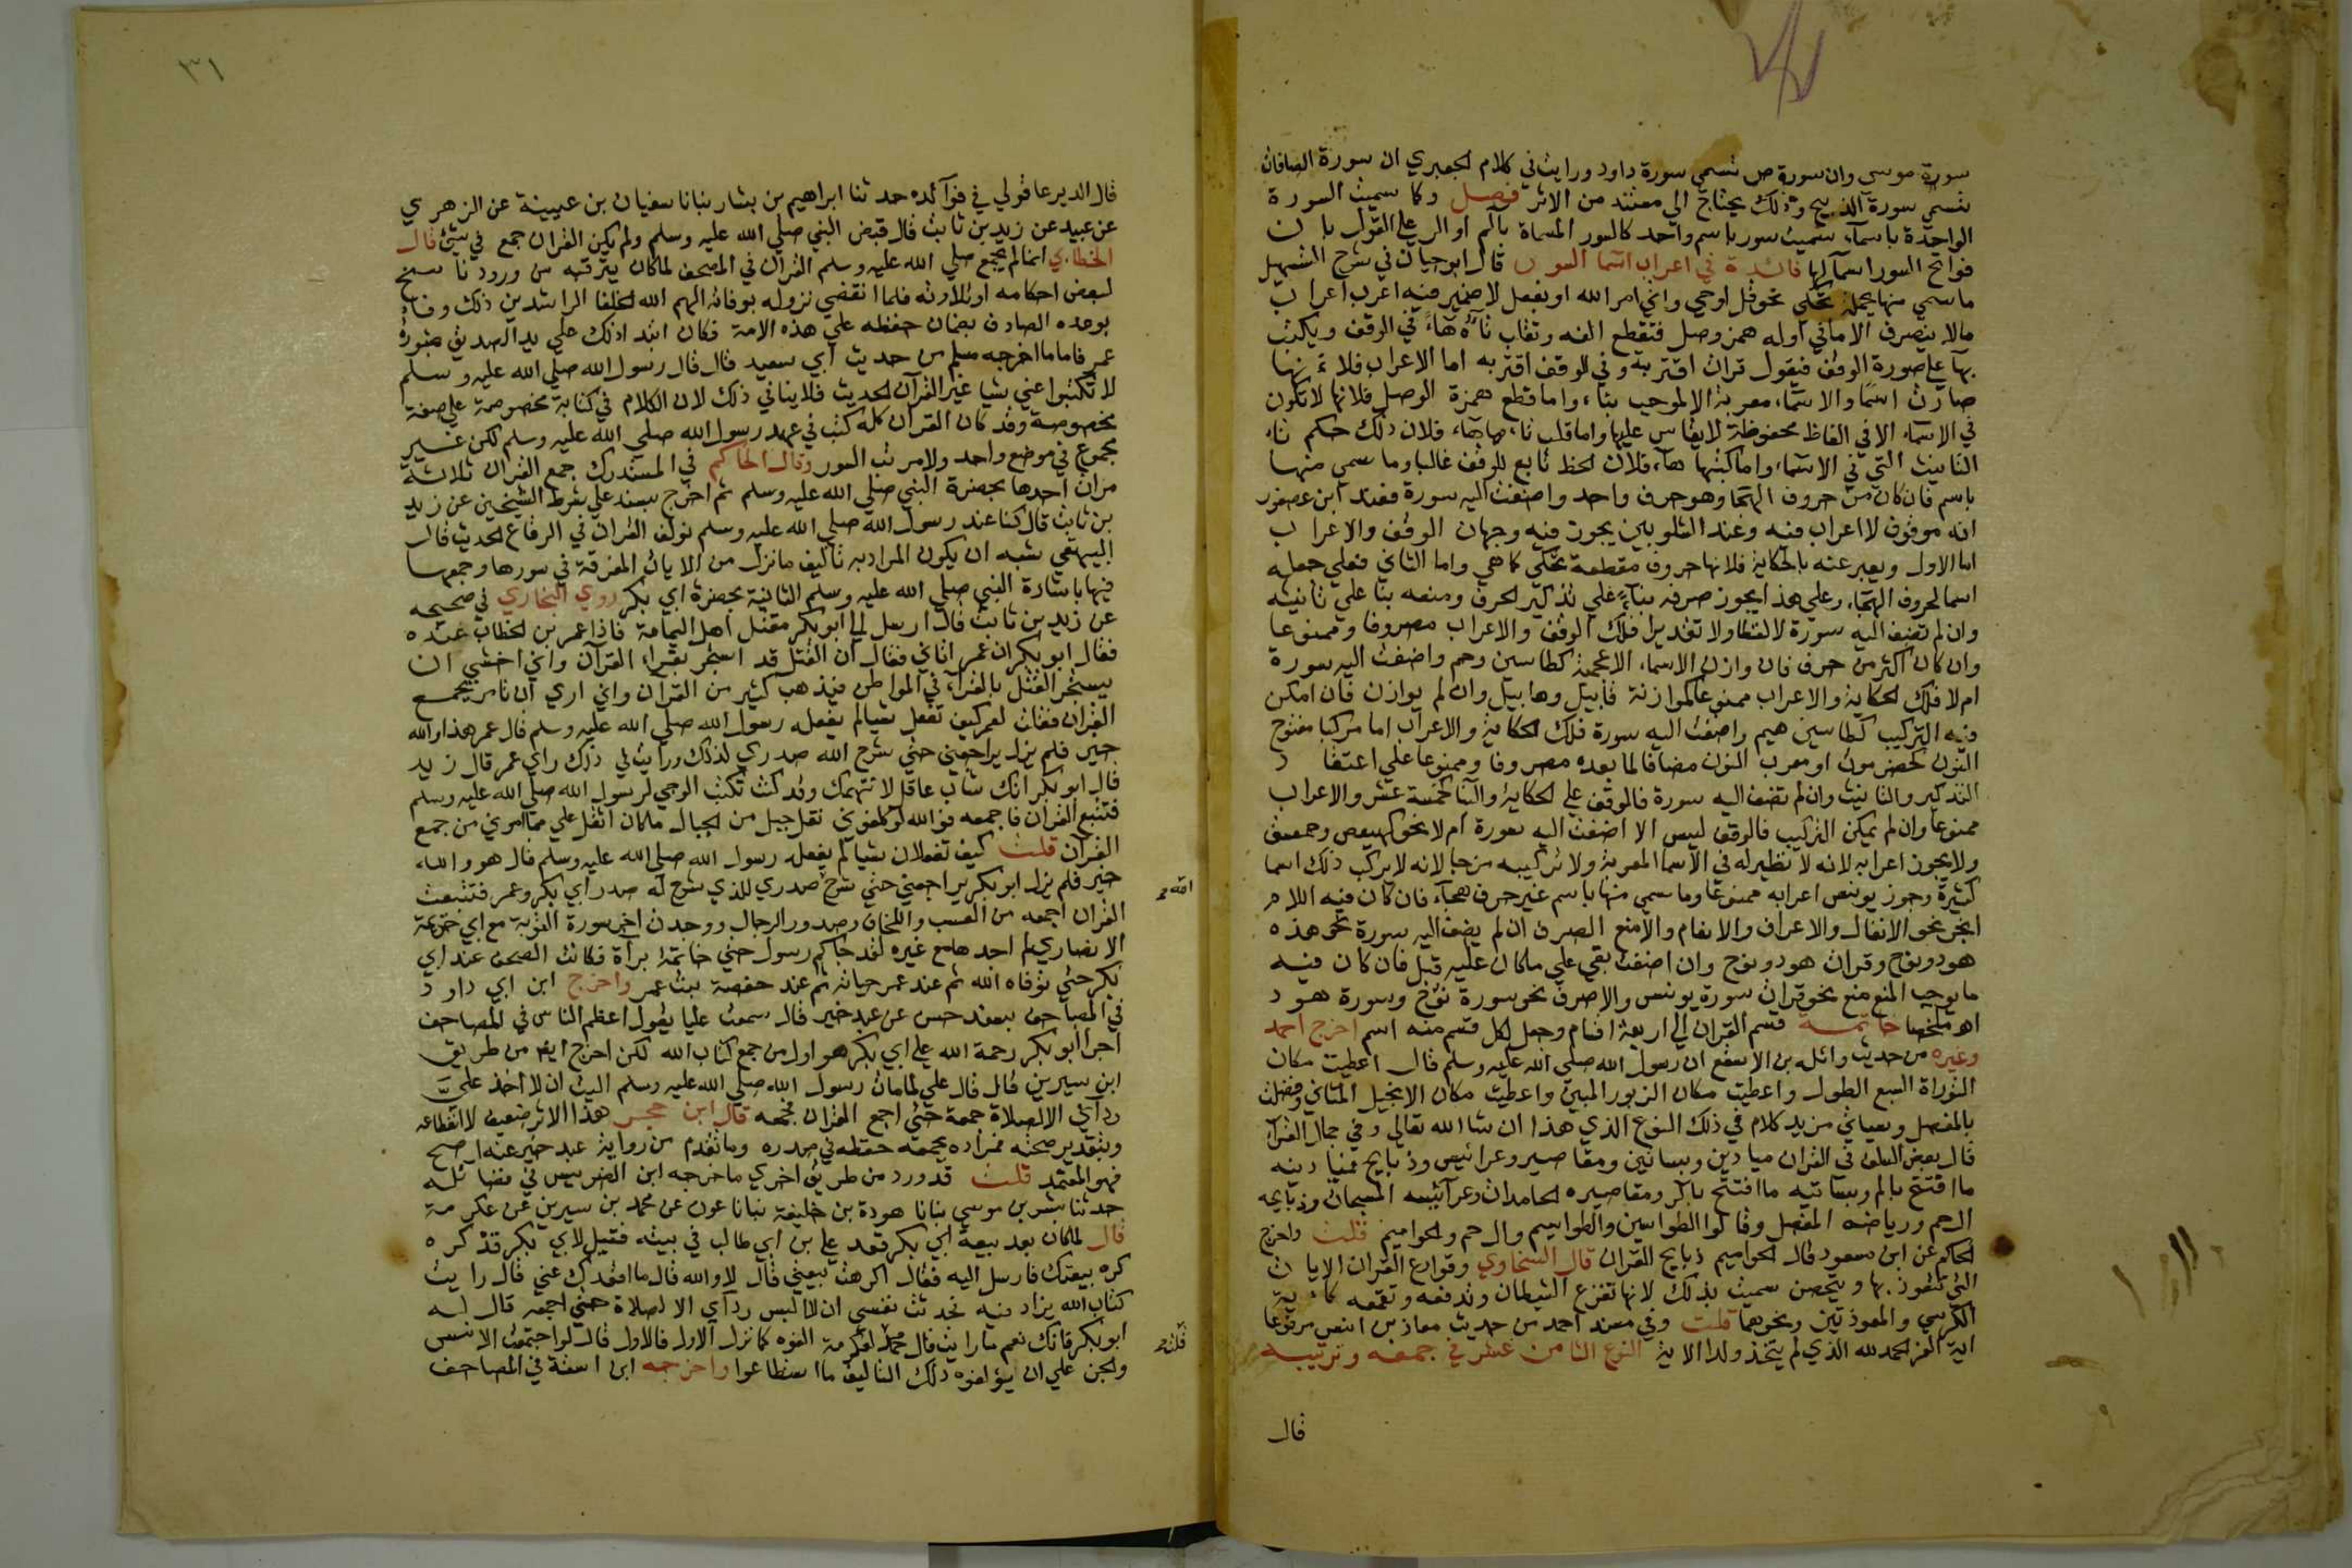 سورة موسى وان سورة ص تسمى سورة داود ورايت في كلام الجعبري ان سورة الصافات
تسمى سورة الذبيح وذلك يحتاج الي مستند من الاثر فصل وكما سميت السورة
الواحدة باسماء سميت سور باسم واحد كالسور المسماة بالم او الر على القول بان
فواتح السور اسماً لها فائدة في اعراب اسما السور قال ابو حيان في شرح التسهيل
ما سمي منها بجملة تحكي نحو قل اوحي واتي امر الله او بفعل لا ضمير فيه اعرب اعراب
مالا ينصرف الا ما في اوله همز وصل فتقطع الفه وتقلب تاؤه هاء في الوقف ويكتب
بهاء على صورة الوقف فتقول قرات اقتربة وفي الوقف اقتربه اما الاعراب فلا نها
صارت اسما والاسماء معربة الا لموجب بناء واما قطع همزة الوصل فلانها لا تكون
في الاسماء الا في الفاظ محفوظة لا يقاس عليها واما قلب تاءها هاء فلان ذلك حكم تاء
التانيث التي في الاسماء واما كتبها هاء فلان الخط تابع للوقف غالبا وما سمي منها
باسم فان كان من حروف الهجا وهو حرف واحد واضفت اليه سورة فعند ابن عصفور
انه موقوف لا اعراب فيه وعند الشلوبين يجوز فيه وجهان الوقف والاعراب
اما الاول ويعبر عنه بالحكاية فلانها حروف مقطعة تحكي كما هي واما الثاني فعلى جعله
اسما لحروف الهجاء وعلى هذا يجوز صرفه بناءً على تذكير الحرف ومنعه بنا على تانيثه
وان لم تضف اليه سورة لا لفظا ولا تقديرا فلك الوقف والاعراب مصروفا وممنوعا
وان كان اكثر من حرف فان وازن الاسماء الاعجمية كطاسين وحم واضفت اليه سورة
ام لا فلك الحكاية والاعراب ممنوعا لموازنة قابيل وهابيل وان لم يوازن فان امكن
فيه التركيب كطاسين ميم واضفت اليه سورة فلك الحكاية والاعراب اما مركبا مفتوح
النون كحضرموت او معرب النون مضافا لما بعده مصروفا وممنوعا على اعتقاد
التذكير والتانيث وان لم تضف اليه سورة فالوقف على الحكاية والبنا كخمسة عشر والاعراب
ممنوعا وان لم يمكن التركيب فالوقف ليس الا اضفت اليه سورة ام لا نحو كهيعص وحمعسق
ولا يجوز اعرابه لانه لا نظير له في الاسما المعربة ولا تركيبه مزجا لانه لا يركب ذلك اسما
كثيرة وجوز يونس اعرابه ممنوعا وما سمي منها باسم غير حرف هجاء فان كان فيه اللام
انجر نحو الانفال والاعراف والانعام والا منع الصرف ان لم يضف اليه سورة نحو هذه
هود ونوح وقرات هود ونوح وان اضفت بقي على ما كان عليه قبل فان كان فيه
ما يوجب المنع منع نحو قرات سورة يونس والا صرف نحو سورة نوح وسورة هود
اهـ ملخصا خاتمــة قسم القران الي اربعة اقسام وجعل لكل قسم منه اسم اخرج احمد
وغيره من حديث واثله بن الاسقع ان رسول الله صلى الله عليه وسلم قال اعطيت مكان
التوراة السبع الطول واعطيت مكان الزبور المبين واعطيت مكان الانجيل المثاني وفضلت
بالمفصل وسياتي مزيد كلام في ذلك النوع الذي هذا ان شا الله تعالى وفي جمال القرآ
قال بعض السلف في القران ميادين وبساتين ومقاصير وعرائيس وذبايح فميادينه
ما افتتح بالم وبساتينه ما افتتح بالر ومقاصيره الحامدات وعرآئيسه المسبحات وذبايحه
ال حم ورياضه المفصل وقالوا الطواسين والطواسيم وال حم والحواميم قلت واخرج
الحاكم عن ابن مسعود قال الحواميم ذبايح القران قال السخاوي وقوارع القران الايات
التي تتعوذ بها ويتحصن سميت بذلك لانها تفزع الشيطان وتدفعه وتقمعه كاية
الكرسي والمعوذتين ونحوهما قلت وفي مسند احمد من حديث معاذ بن انس مرفوعا
اية العز الحمد لله الذي لم يتخذ ولدا الاية النوع الثامن عشر في جمعه وترتيبه
قال
٣١
قال الديرعاقولي في فوآئده حدثنا ابراهيم بن بشار نبانا سفيان بن عيينة عن الزهري
عن عبيد عن زيد بن ثابت قال قبض النبي صلى الله عليه وسلم ولم يكن القران جمع في شئ قال
الخطابي انما لم يجمع صلى الله عليه وسلم القران في المصحف لما كان يترقبه من ورود ناسخ
لبعض احكامه او تلاوته فلما انقضي نزوله بوفاته الهم الله الخلفا الراشدين ذلك وفاء
بوعده الصادق بضمان حفظه علي هذه الامة فكان ابتدا ذلك على يد الصديق بمشورة
عمر فاما ما اخرجه مسلم من حديث ابي سعيد قال قال رسول الله صلى الله عليه وسلم
لا تكتبوا عني شيا غير القرآن الحديث فلا ينافي ذلك لان الكلام في كتابة مخصوصة على صفة
مخصوصة وقد كان القران كله كتب في عهد رسول الله صلى الله عليه وسلم لكن غير
مجموع في موضع واحد ولا مرتب السور وقال الحاكم في المستدرك جمع القران ثلاثة
مرات احدها بحضرة النبي صلى الله عليه وسلم ثم اخرج بسند على شرط الشيخين عن زيد
بن ثابت قال كنا عند رسول الله صلى الله عليه وسلم نولف القران في الرقاع الحديث قال
البيهقي شبه ان يكون المراد به تاليف ما نزل من الايات المفرقة في سورها وجمعها
فيها باشارة النبي صلى الله عليه وسلم الثانية بحضرة ابي بكر روي البخاري في صحيحه
عن زيد بن ثابت قال ارسل الي ابو بكر مقتل اهل اليمامة فاذا عمر بن الخطاب عنده
فقال ابو بكر ان عمر اتاني فقال ان القتل قد استحر بقراء القرآن واني اخشي ان
يستحر القتل بالقراء في المواطن فيذهب كثير من القران واني اري ان تامر بجمع
القران فقلت لعمر كيف تفعل شيا لم يفعله رسول الله صلى الله عليه وسلم قال عمر هذا والله
خير فلم يزل يراجعني حتي شرح الله صدري لذلك ورايت في ذلك راي عمر قال زيد
قال ابو بكر انك شاب عاقل لا نتهمك وقد كنت تكتب الوحي لرسول الله صلى الله عليه وسلم
فتتبع القران فاجمعه فوالله لو كلفوني نقل جبل من الجبال ما كان اثقل علي مما امرني من جمع
القرآن قلت كيف تفعلان شيا لم يفعله رسول الله صلى الله عليه وسلم قال هو والله
خير فلم يزل ابو بكر يراجعني حتي شرح صدري للذي شرح له صدر ابي بكر وعمر فتتبعت
الله
القران اجمعه من العسب واللخاف وصدور الرجال ووجدت اخر سورة التوبة مع ابي خزيمة
الانصاري لم اجدها مع غيره لقد جاكم رسول حتي خاتمة برآة فكانت الصحف عند ابي
بكر حتي توفاه الله ثم عند عمر حياته ثم عند حفصة بنت عمر واخرج ابن ابي داود
في المصاحف بسند حسن عن عبد خير قال سمعت عليا يقول اعظم الناس في المصاحف
اجرا ابو بكر رحمة الله علي ابي بكر هو اول من جمع كتاب الله لكن اخرج ايضا من طريق
ابن سيرين قال قال علي لما مات رسول الله صلى الله عليه وسلم اليت ان لا اخذ عليّ
ردآئي الا لصلاة جمعة حتي اجمع القران فجمعه قال ابن حجر هذا الاثر ضعيف لانقطاعه
وبتقدير صحته فمراده بجمعه حفظه في صدره وما تقدم من رواية عبد خير عنه اصح
فهو المعتمد قلت قد ورد من طريق اخري ماخرجه ابن الضريس في فضائله
حدثنا بشر بن موسي نبانا هودة بن خليفة نبانا عون عن محمد بن سيرين عن عكرمة
قال لما كان بعد بيعة ابي بكر قعد علي بن ابي طالب في بيته فقيل لابي بكر قد كره
كره بيعتك فارسل اليه فقال اكرهت بيعتي قال لا والله قال ما اقعدك عني قال رايت
كتاب الله يزاد فيه فحدثت نفسي ان لا البس ردآي الا لصلاة حتي اجمعه قال له
ابو بكر فانك نعم ما رايت قال محمد لعكرمة الفوه كما نزل الاول فالاول قال لو اجتمعت الانس
والجن علي ان يؤلفوه ذلك التاليف ما استطاعوا واخرجه ابن اشتة في المصاحف